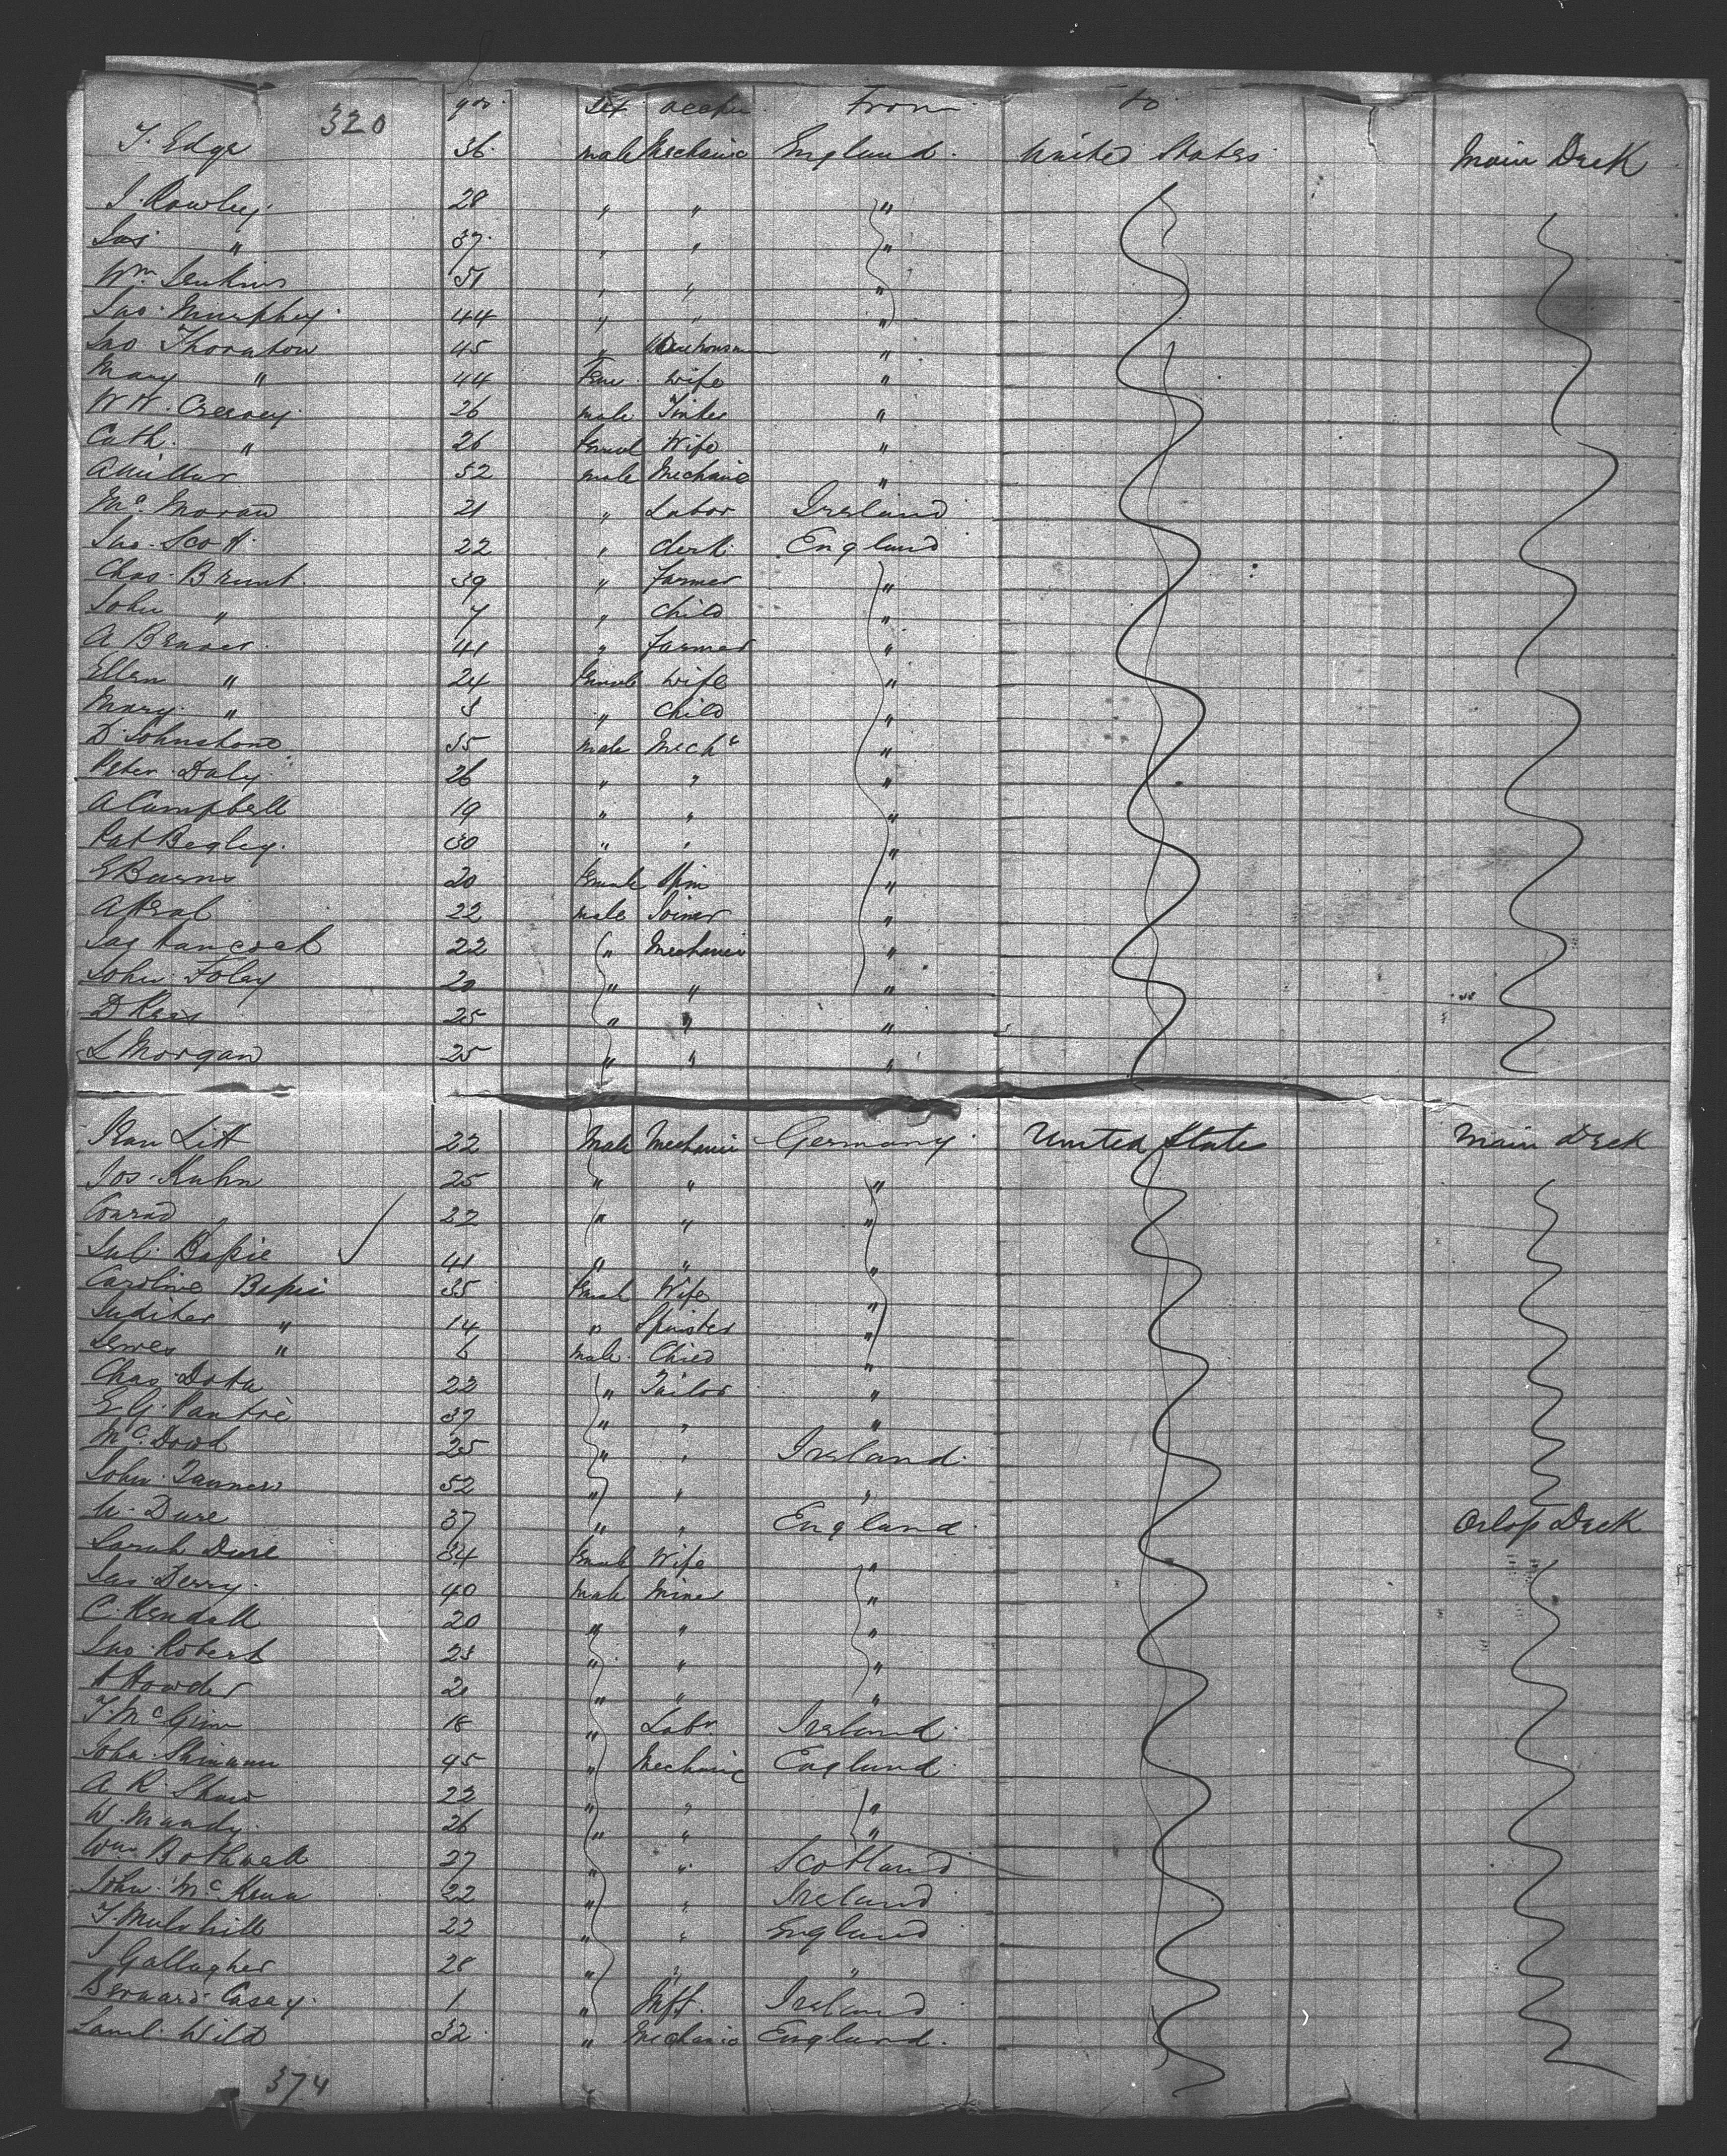 320 yrs. Sex occpn. From to
T. Edge 36 male Mechanic England. United States Main Deck
J. Rowley 28 " " "
Jas " 37 " " "
Wm Jenkins 51 " " "
Jno. Murphey 44 " " "
Jno Thornton 45 " Warehousm "
Mary " 44 Fem. wife "
W H. Creevey 26 male Tinker "
Cath. " 26 Femal Wife "
A Millar 52 male Mechanic "
Mc. Moran 21 " Labor Ireland
Jno. Scott 22 " Clerk England
Chas. Brunt. 39 " Farmer "
John " 7 " Child "
A Beaver 41 " Farmer "
Ellen " 24 Female Wife "
Mary " 3 " Child "
D. Johnstone 35 male Mechc "
Peter Daly 26 " " "
A Campbell 19 " " "
Pat Begley. 30 " " "
E Burns 20 Female Spin "
22 male Joiner "
Jas Hancock 22 " Mechanic "
John Foley 20 " " "
D Rees 25 " " "
L Morgan 25 " " "
Litt 22 Male Mechanic Germany United States Main Deck
Jos. Kuhn 25 " " "
Conrad 22 " " "
Bapie 41 " " "
Caroline Bapie 35 Femal Wife "
" 14 " Spinster "
" 6 male Child "
Chas. Dota 22 " Tailor "
E G. Pantre 37 " " "
Mc. Dowd 25 " " Ireland.
John Tanner 52 " " "
W. Dure 37 " " England. Orlop Deck
Sarah Dure 34 Femal Wife "
Jas. Derry. 40 Male Miner "
C. Kendall 20 " " "
Jno. Robert 23 " " "
H Howder 21 " " "
T. McGinn 18 " Labr. Ireland.
John 45 " Mechanic England
A R. Shaw 22 " " "
W. Mundy. 26 " " "
Wm Bothwell 27 " " Scotland
John McKenna 22 " " Ireland
T. Mulvhill 22 " " England
J Gallagher 28 " " "
Bernard Casey 1 " Inft. Ireland
Saml. Wild 32 " Mechanic England.
374